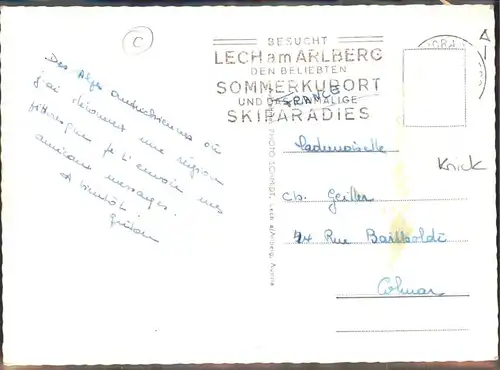 C
BESUCHT
LECH am ARLBERG
DEN BELIEBTEN
SOMMERKURORT
UND DAS EINMALIGE
SKIPARADIES
FRANCE
Des Alpes autrichiennes où
j'ai découvert une région
pittoresque je t'envoie mes
amicaux messages.
A bientôt!
Mademoiselle
Ch. Geiller
Rue Bartholdi
Colmar
Knick
PHOTO SCHMIDT, Lech a/Arlberg, Austria